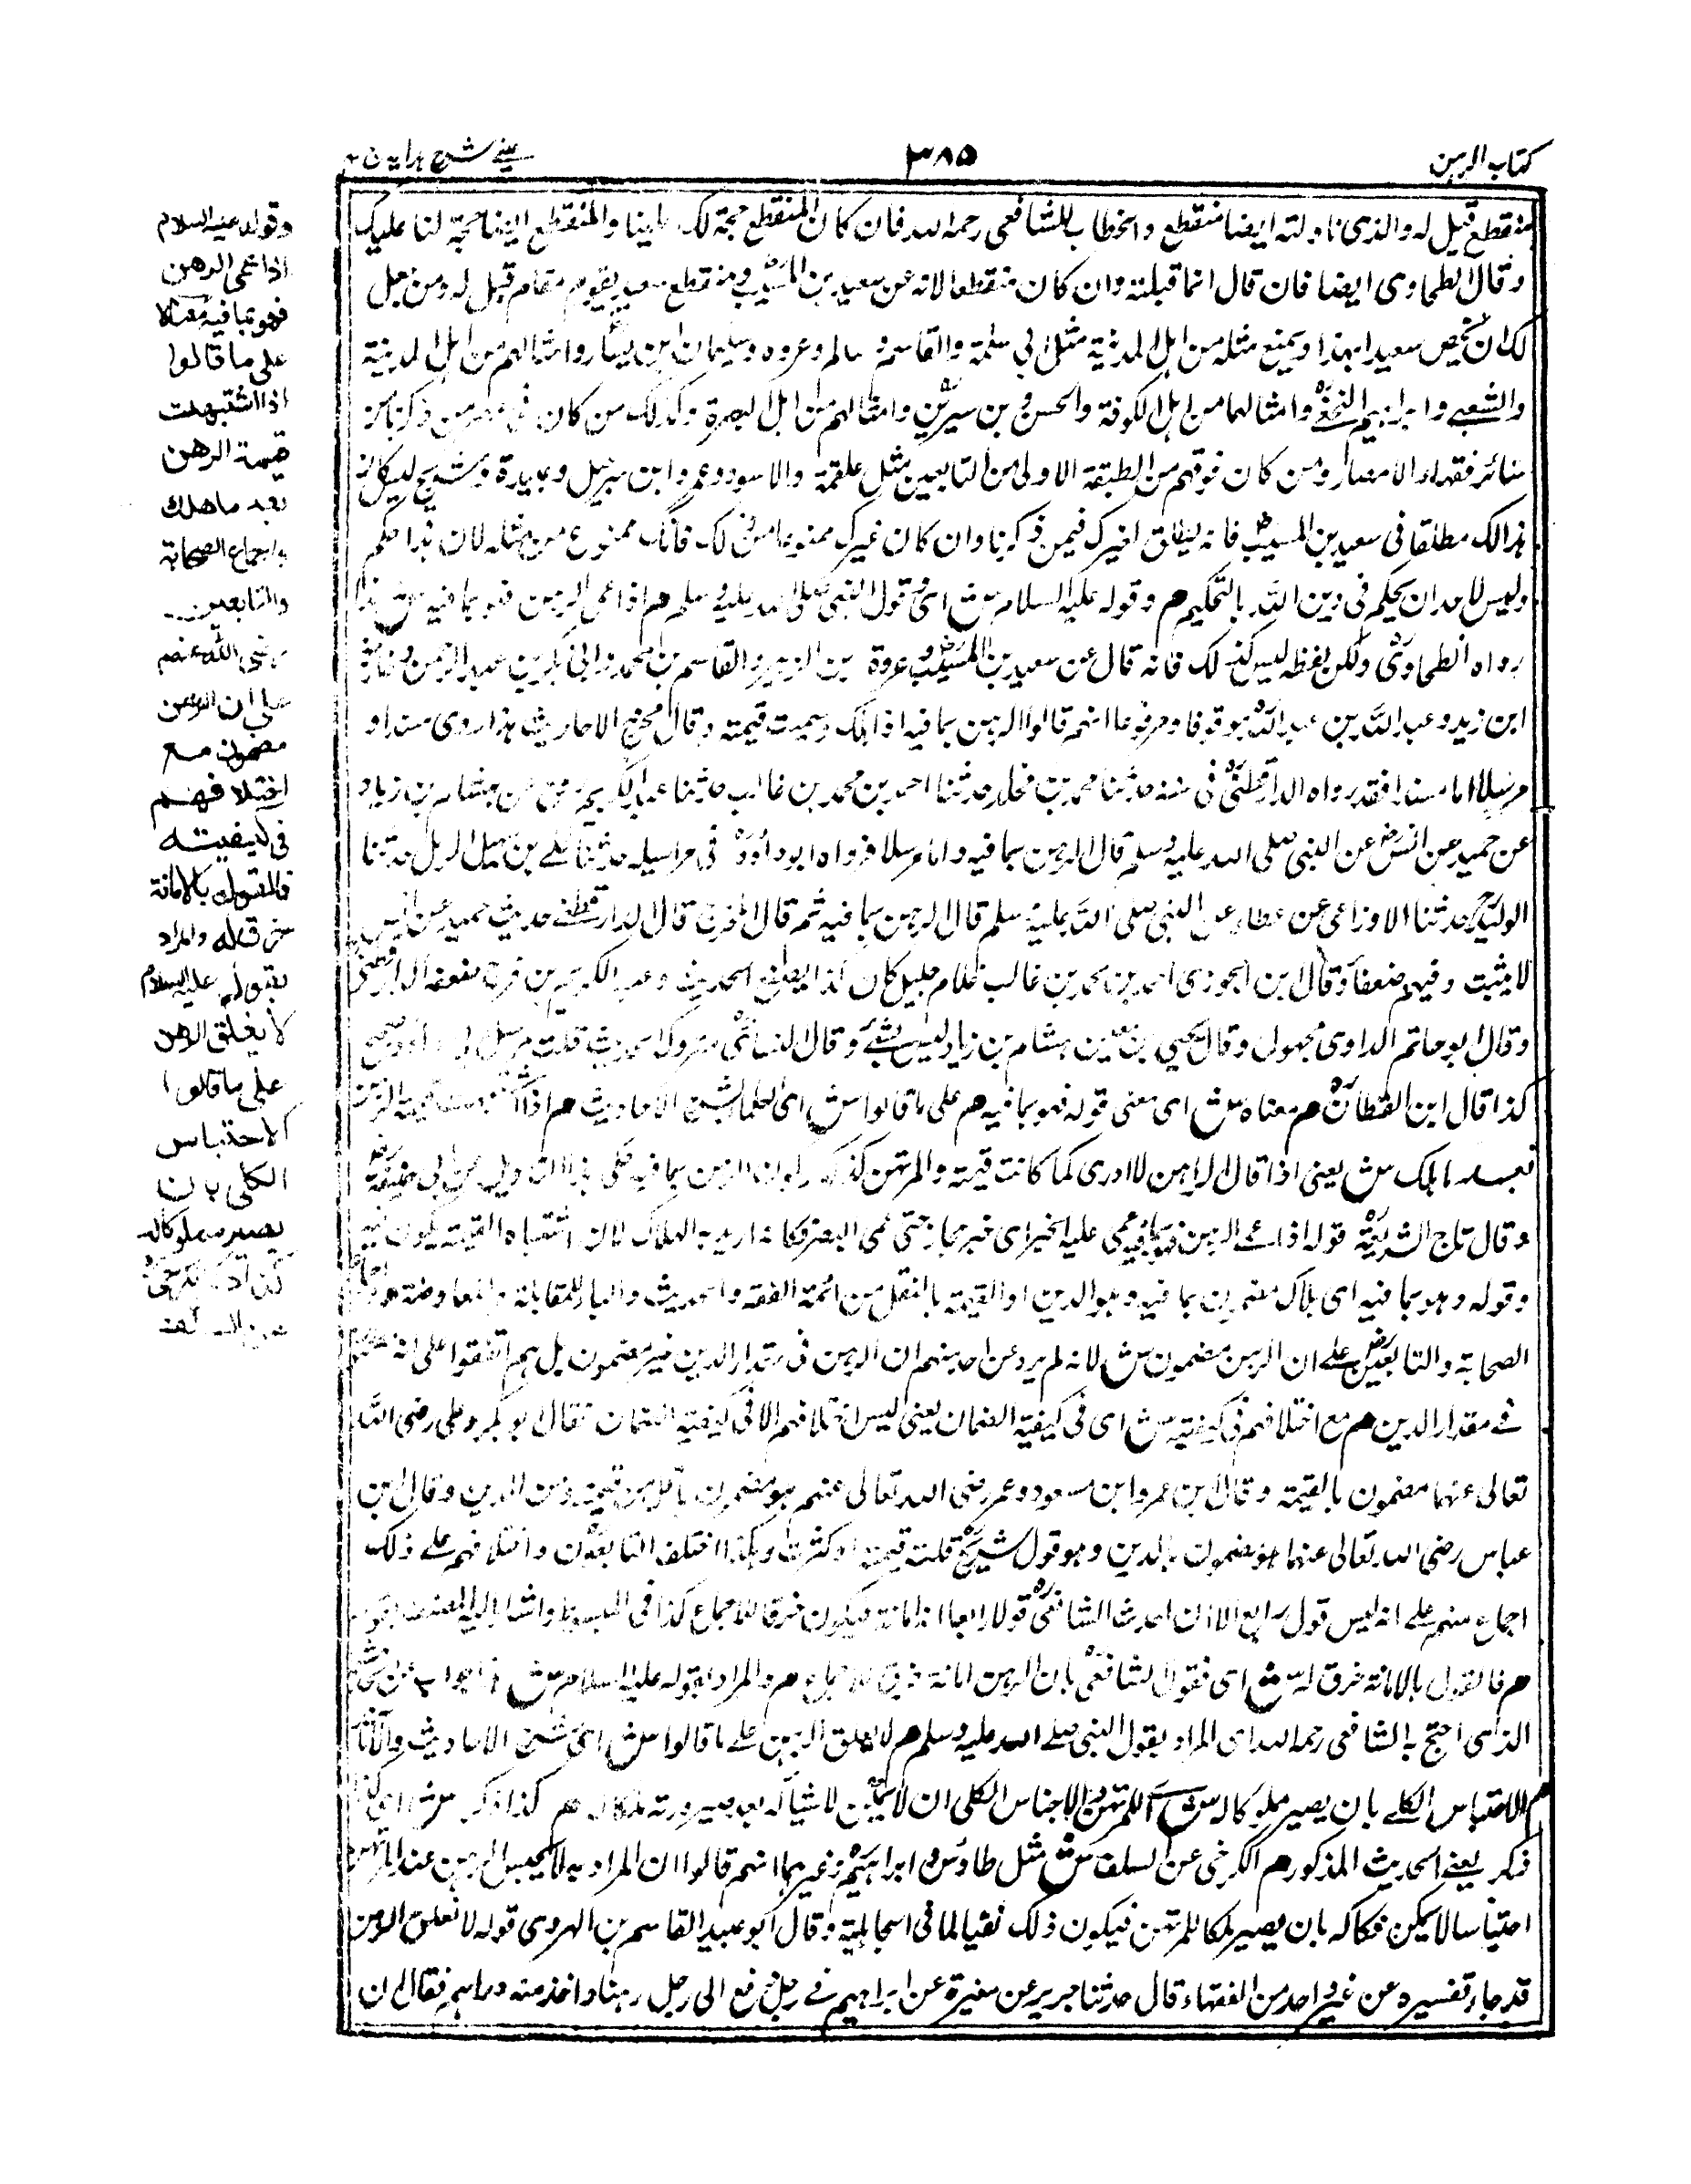 كتاب الرهن
٣٨٥
عيني شرح هدايه ج ٤
منقطع قيل له والذى ناولته ايضا منقطع والخطاب للشافعى رحمه الله فان كان المنقطع حجة لك علينا والمنقطع ايضا حجة لنا عليك
وقال الطحاوى ايضا فان قال انما قبلته وان كان منقطعا لانه عن سعيد بن المسيب ومنقطع سعيد يقوم مقام قبل له ومن جعل
لك ان تخص سعيدا بهذا وتمنع مثله من اهل المدينة مثل ابى سلمة والقاسم و سالم وعروه وسليمان بن يسار وامثالهم من اهل المدينة
والشعبى وابراهيم النخعى وامثالهما من اهل الكوفة والحسن و بن سيرين وامثالهم من اهل البصرة وكذلك من كان فى عصر من ذكرنا من
سائر فقهاء الامصار ومن كان فوقهم من الطبقة الاولى من التابعين مثل علقمة والاسود وعمرو ابن شرحبيل وعبيدة وشريح لئن كان
هذا لك مطلقا فى سعيد بن المسيب فانه يطلق لغيرك فيمن ذكرنا وان كان غيرك ممنوعا من ذلك فانك ممنوع من مثله لان هذا حكم
وليس لاحد ان يحكم فى دين الله بالتحكيم هم وقوله عليه السلام ش اى وقول النبى صلى الله عليه وسلم هم اذا عمى الرهن فهو بما فيه ش هذا
رواه الطحاوى ولكن لفظه ليس كذلك فانه قال عن سعيد بن المسيب وعروة بن الزبير والقاسم بن محمد وابى بكر بن عبد الرحمن وخارجة
ابن زيد وعبد الله بن عبد الله موقوفا ومرفوعا انهم قالوا الرهن بما فيه اذا هلك وعميت قيمته وقال مخرج الاحاديث هذا روى مسندا و
مرسلا اما مسندا فقد رواه الدارقطنى فى سننه حدثنا محمد بن مخلد حدثنا احمد بن محمد بن غالب حدثنا عبد الكريم بن روح عن هشام بن زياد
عن حميد عن انس عن النبى صلى الله عليه وسلم قال الرهن بما فيه واما مرسلا فرواه ابو داود فى مراسيله حدثنا على بن سهل الرملى حدثنا
الوليد حدثنا الاوزاعى عن عطاء عن النبى صلى الله عليه وسلم قال الرهن بما فيه ثم قال المخرج قال الدارقطنى حديث حميد عن انس
لا يثبت وفيهم ضعفاء وقال ابن الجوزى احمد بن محمد بن غالب غلام خليل كان كذابا يضع الحديث وعبد الكريم بن روح ضعفه الدارقطنى
وقال ابو حاتم الراوى مجهول وقال يحيى بن معين هشام بن زياد ليس بشئ وقال النسائى متروك الحديث قلت مرسل ابى داود صحيح
كذا قال ابن القطان هم معناه ش اى معنى قوله فهو بما فيه هم على ما قالوا ش اى العلماء بشرح الاحاديث هم اذا اشتبهت قيمة الرهن
بعد ما هلك ش يعنى اذا قال الراهن لا ادرى كما كانت قيمته والمرتهن كذلك
وقال تاج الشريعة قوله اذا عمى الرهن فهو بما فيه عمى عليه الخبر اى خبر مجاز حتى عمى البصر فكانه اريد به الهلاك لان اشتباه القيمة يكون فيه
وقوله وهو بما فيه اى هلاك مضمون بما فيه وهو الدين او القيمة بالنقل من ائمة الفقه والحديث والباء للمقابلة والمعاوضة
الصحابة والتابعين على ان الرهن مضمون ش لانه لم يرد عن احد منهم ان الرهن فى مقدار الدين غير مضمون بل هم اتفقوا على انه مضمون
فى مقدار الدين هم مع اختلافهم فى كيفيته ش اى فى كيفية الضمان يعنى ليس اختلافهم الا فى كيفية الضمان فقال ابو بكر وعلى رضى الله
تعالى عنهما مضمون بالقيمة وقال ابن عمر وابن مسعود وعمر رضى الله تعالى عنهم هو مضمون بالاقل من قيمته ومن الدين وقال ابن
عباس رضى الله تعالى عنهما هو مضمون بالدين وهو قول شريح قلت قيمته او كثرت وهكذا اختلف التابعون واختلافهم على ذلك
اجماع منهم على انه ليس قول رابع الا ان احدث الشافعى قولا رابعا انه امانة فيكون خرقا للاجماع كذا فى المبسوط واشار اليه المصنف بقوله
هم فالقول بالامانة خرق له ش اى فقول الشافعى بان الرهن امانة خرق للاجماع هم والمراد بقوله عليه السلام ش هذا جواب عن
الذى احتج به الشافعى رحمه الله اى المراد بقول النبى صلى الله عليه وسلم هم لا يغلق الرهن على ما قالوا ش اى شرح الاحاديث والآثار
هم الاحتباس الكلى بان يصير مملوكا له ش اى للمرتهن والاحتباس الكلى ان لا يمكن لا شيأ له بعد صيرورته ملكا له هم كذا ذكر ش اى كذا
ذكر يعنى الحديث المذكور هم الكرخى عن السلف ش مثل طاوس وابراهيم وغيرهما انهم قالوا ان المراد به لا يحبس الرهن عند المرتهن
احتباسا لا يمكن فكاكه بان يصير ملكا للمرتهن فيكون ذلك نفيا لما فى الجاهلية وقال ابو عبيد القاسم بن الهروى قوله لا تغلق الرهن
قد جاء تفسيره عن غير واحد من الفقهاء قال حدثنا جرير عن مغيرة عن ابراهيم فى رجل دفع الى رجل رهنا واخذ منه دراهم فقال ان
وقوله عليه السلام
اذا عمى الرهن
فهو بما فيه معناه
على ما قالوا
اذا اشتبهت
قيمة الرهن
بعد ما هلك
واجماع الصحابة
والتابعين
رضى الله عنهم
على ان الرهن
مضمون مع
اختلافهم
فى كيفيته
فالقول بالامانة
خرق له والمراد
بقوله عليه السلام
لا يغلق الرهن
على ما قالوا
الاحتباس
الكلى بان
يصير مملوكا له
كذا ذكر الكرخى
عن السلف